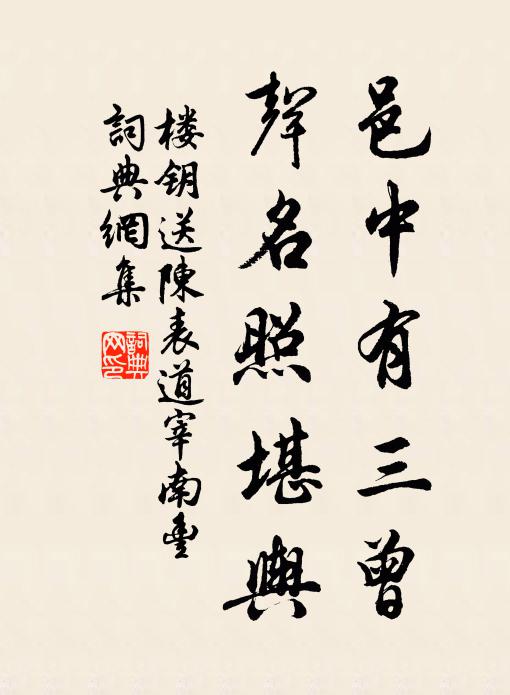 邑中有三曾
聲名照堪輿
楼钥送陳表道宰南豐
詞典網集
詞典網印